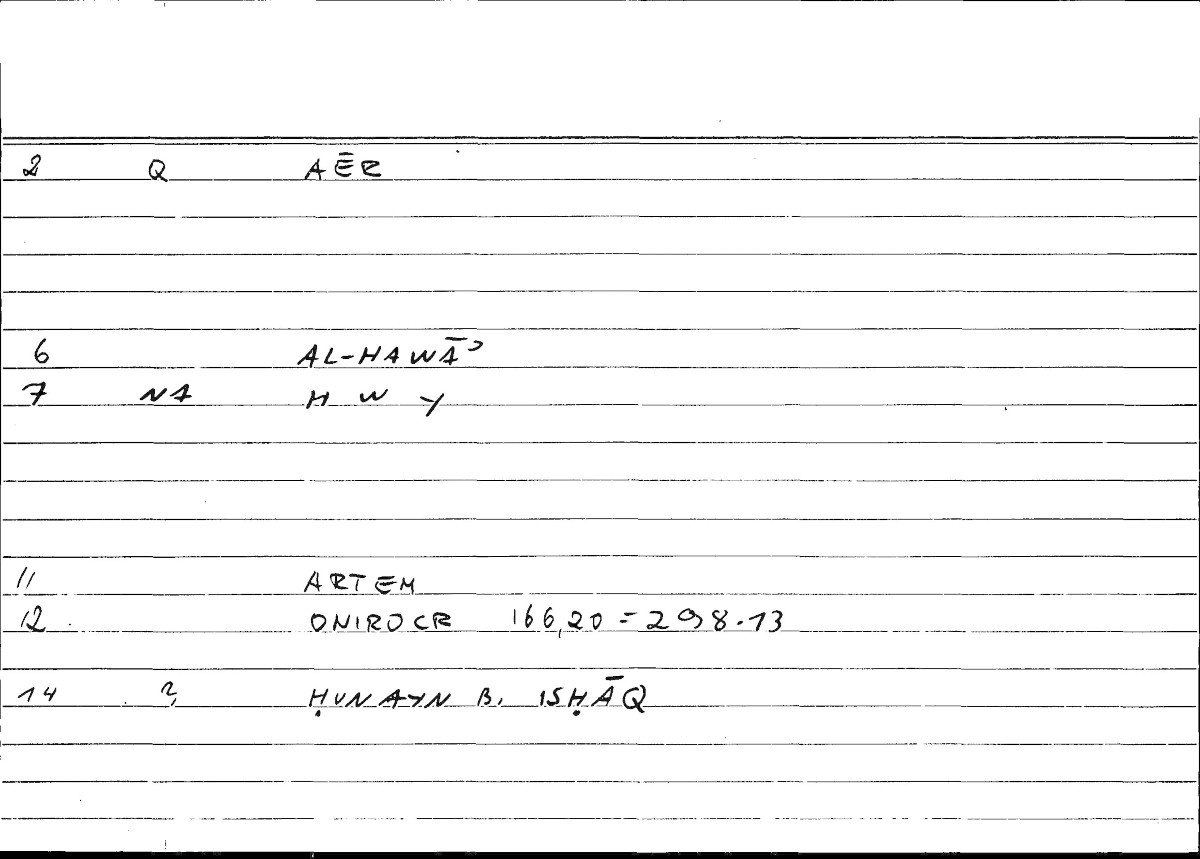 2 Q AĒR
6 AL-HAWĀʾ
7 NA H W Y
11 ARTEM
12 ONIROCR 166,20 = 298.13
14 ? ḤUNAYN B. ISḤĀQ